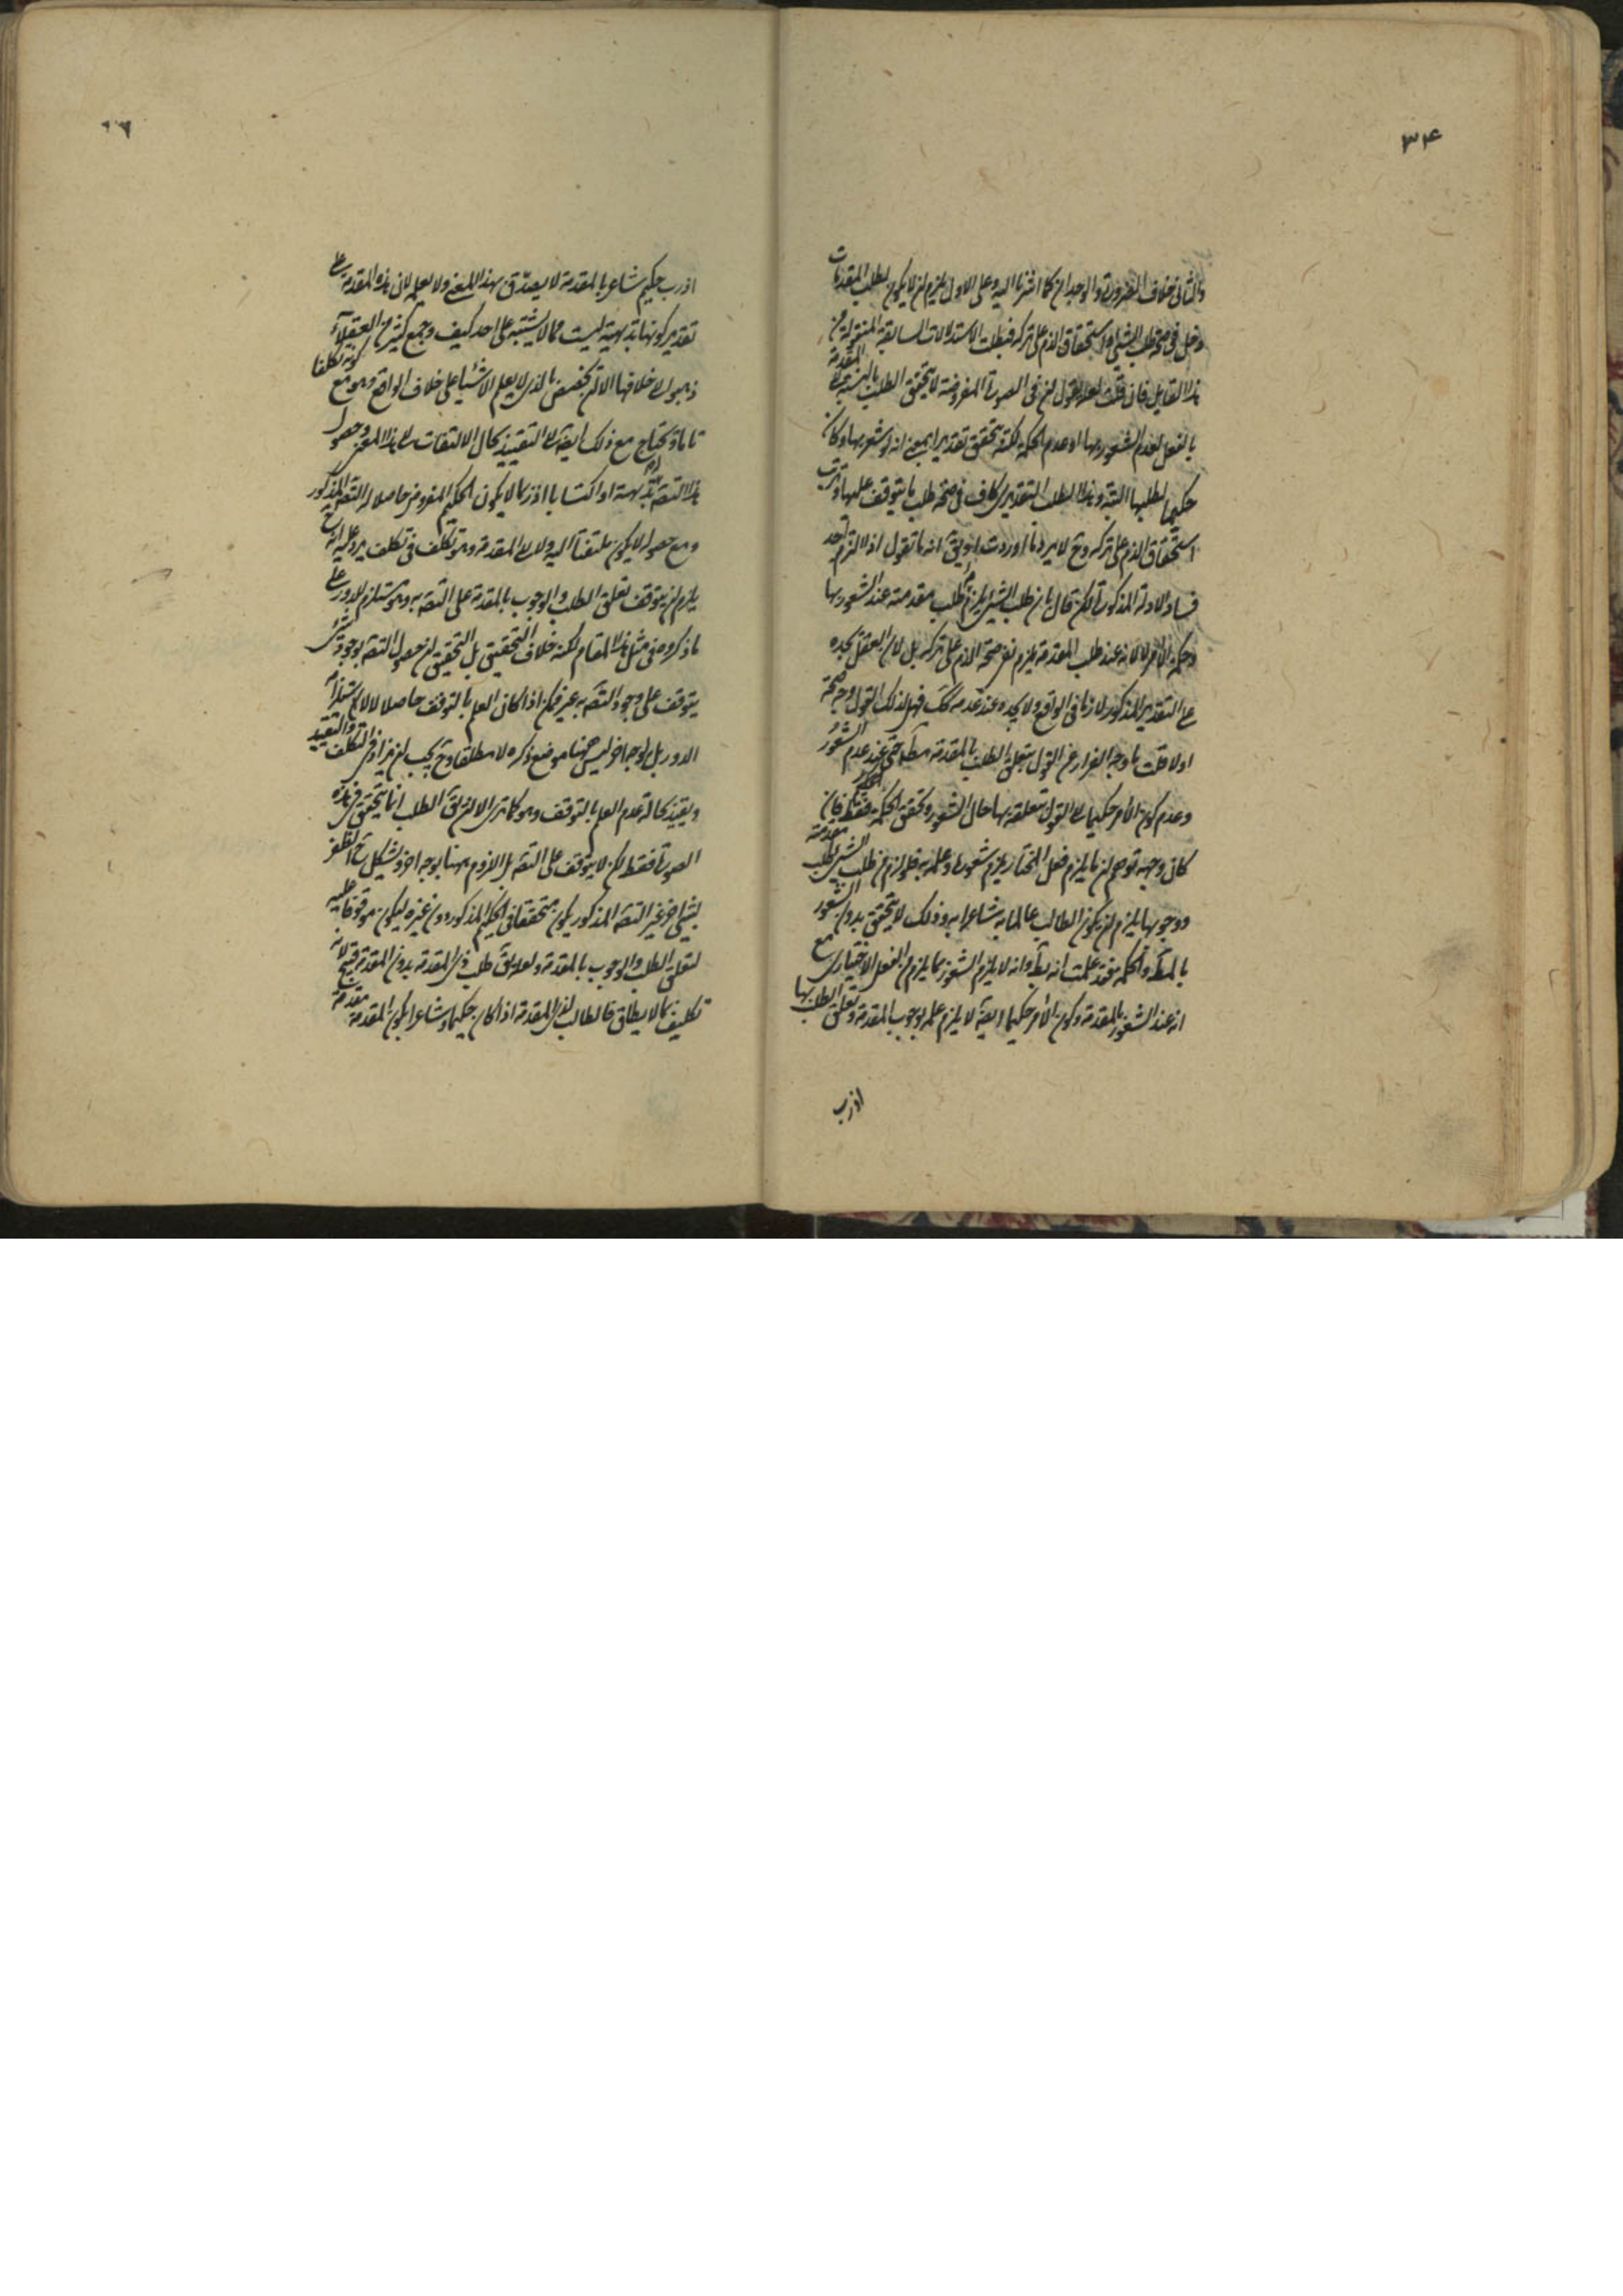 ۳۴
والثانی خلاف الضرورة والوجدان كما اشرنا اليه وعلى الاول يلزم ان لا يكون لطلب المقدمات
دخل فی صحة طلب الشئ واستحقاق الذم على تركه فبطلت الاستدلالات السابقة المنقولة من
هذا القايل فان قلت لعله يقول ان فی الصورة المفروضة لا يتحقق الطلب بالنسبة الى المقدمة
بالفعل لعدم الشعور بها او عدم الحكمة لكنه يتحقق تقديرا بمعنى انه لو شعر بها وكان
حكيما لطلبها البتة وهذا الطلب التقديری كاف فی صحة طلب ما يتوقف عليها وترتب
استحقاق الذم على تركه وح لا يرد ما اوردت او يق انه ما تقول اذ لا لزم احد
فساد الادلة المذكورة لكن قال بان طلب الشئ يلزمه طلب مقدمته عند الشعور بها
وحكمة الآمر لا لانه عند طلب المقدمة يلزم نفی صحة الذم على تركه بل لان العقل يجده
على التقدير المذكور لازما فی الواقع ولا يجده عند عدمه كك فهل لذلك القول وجه صحة
اولا قلت ما وجه الفرار عن القول بتعلق الطلب بالمقدمة مط حتى عند عدم الشعور
وعدم كون الآمر حكيما الى القول بتعلقه بها حال الشعور وتحقق الحكمة فقط فان
كان وجهه توهم ان ما يلزم فعل المختار يلزم شعوره وعلمه به فلو لزم من طلب الشئ طلب مقدمته
ووجوبها يلزم ان يكون الطالب عالما به شاعرا به وذلك لا يتحقق بدون الشعور
بالمط والحكمة فقد علمت انه بط وانه لا يلزم الشعور بما يلزم الفعل الاختياری مع
انه عند الشعور بالمقدمة وكون الآمر حكيما ايضه لا يلزم علمه بوجوب المقدمة وتعلق الطلب بها
اذ رب
اذ رب حكيم شاعر بالمقدمة لا يصدق بهذا المعنى ولا يعلمه لان هذه المقدمة على
تقدير كونها بديهية ليست مما لا يشتبه على احد كيف وجمع كثير من العقلاء
ذهبوا الى خلافها الا ان يخصص بالذی لا يعلم الاشياء على خلاف الواقع وهو مع كونه تكلفا
تاما يحتاج مع ذلك ايضه الى التقييد بحال الالتفات الى هذا المعنى وحصول
هذا التصه بديهة او اكتسابا اذ ربما لا يكون الحكيم المفروض حاصلا له التصه المذكور
ومع حصوله لا يكون ملتفتا اليه ولا الى المقدمة وهو تكلف فی تكلف يرد عليه انه ح
يلزم ان يتوقف تعلق الطلب والوجوب بالمقدمة على التصه به وهو مستلزم للدور على
ما ذكروه فی مثل هذا المقام لكنه خلاف التحقيق بل التحقيق ان حصول التصه بوجود شئ
يتوقف على وجود التصه به غير ممكن اذا كان العلم بالتوقف حاصلا لا لاستلزامه
الدور بل لوجه اخر ليس ههنا موضع ذكره لا مطلقا وح يجب ان يزاد فی التكلف والتقييد
ويقيد بحالة عدم العلم بالتوقف وهو كما ترى الا ان يق الطلب انما يتحقق فی هذه
الصورة فقط لكن لا يتوقف على التصه بل اللزوم بهما بوجه اخر ويشكل ح الظفر
بشئ اخر غير التصه المذكور يكون متحققا فی الحكيم المذكور دون غيره ليكون موقوفا عليه
لتعلق الطلب والوجوب بالمقدمة ولعله يق طلب ذی المقدمة بدون المقدمة قبيح لانه
تكليف بما لا يطاق فالطالب لذی المقدمة اذا كان حكيما وشاعرا بكون المقدمة مقدمة